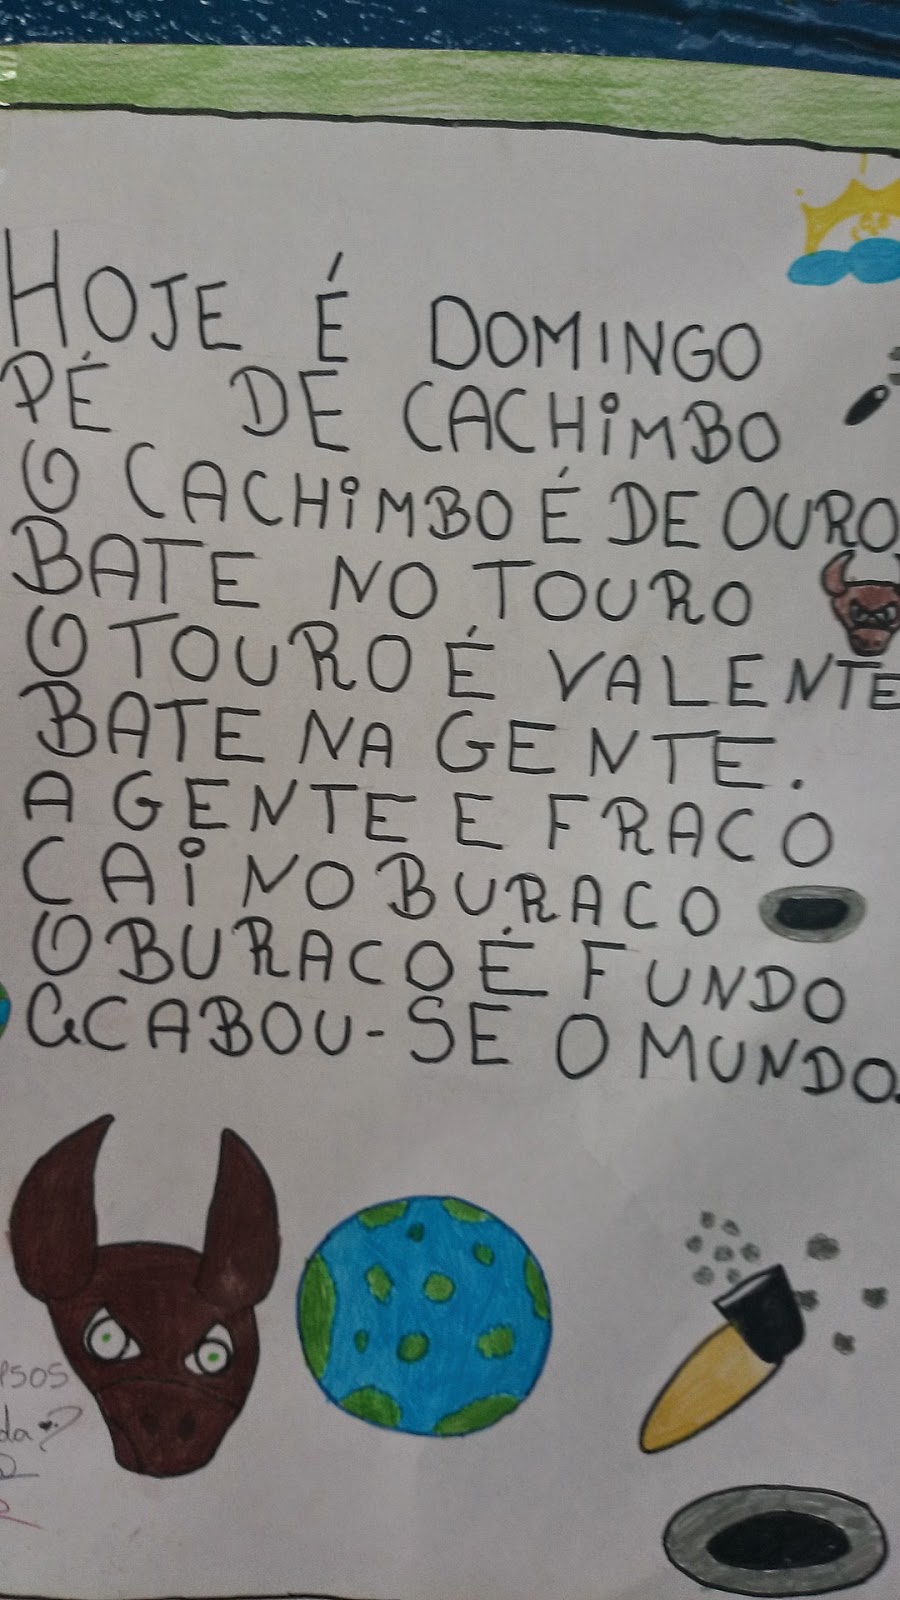 HOJE É DOMINGO
PÉ DE CACHIMBO
O CACHIMBO É DE OURO
BATE NO TOURO
O TOURO É VALENTE
BATE NA GENTE.
A GENTE E FRACO
CAI NO BURACO
O BURACO É FUNDO
ACABOU-SE O MUNDO.